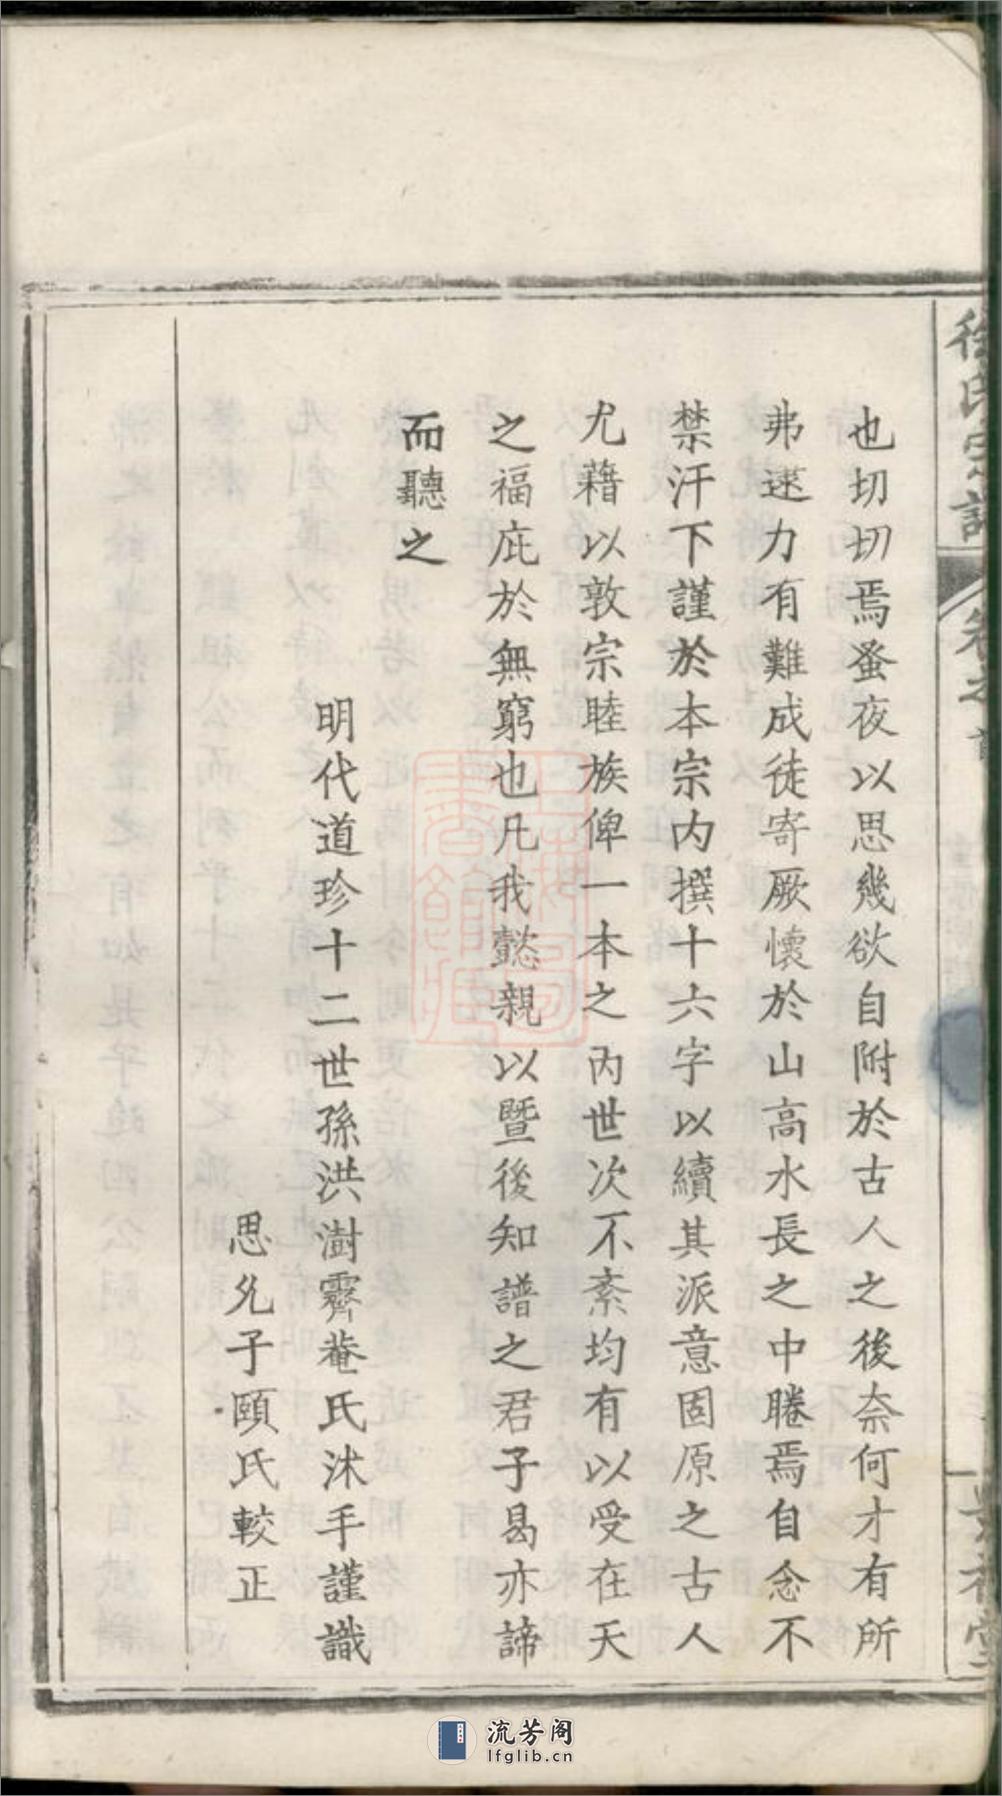 徐氏宗譜
卷之首
也切切焉蚤夜以思幾欲自附於古人之後奈何才有所
弗逮力有難成徒寄厥懷於山高水長之中睠焉自念不
禁汗下謹於本宗内撰十六字以續其派意固原之古人
尤藉以敦宗睦族俾一本之内世次不紊均有以受在天
之福庇於無窮也凡我懿親以暨後知譜之君子曷亦諦
而聽之
明代道珍十二世孫洪澍霽菴氏沐手謹識
思允子頤氏較正
上海圖書館藏
流芳阁
lfglib.cn